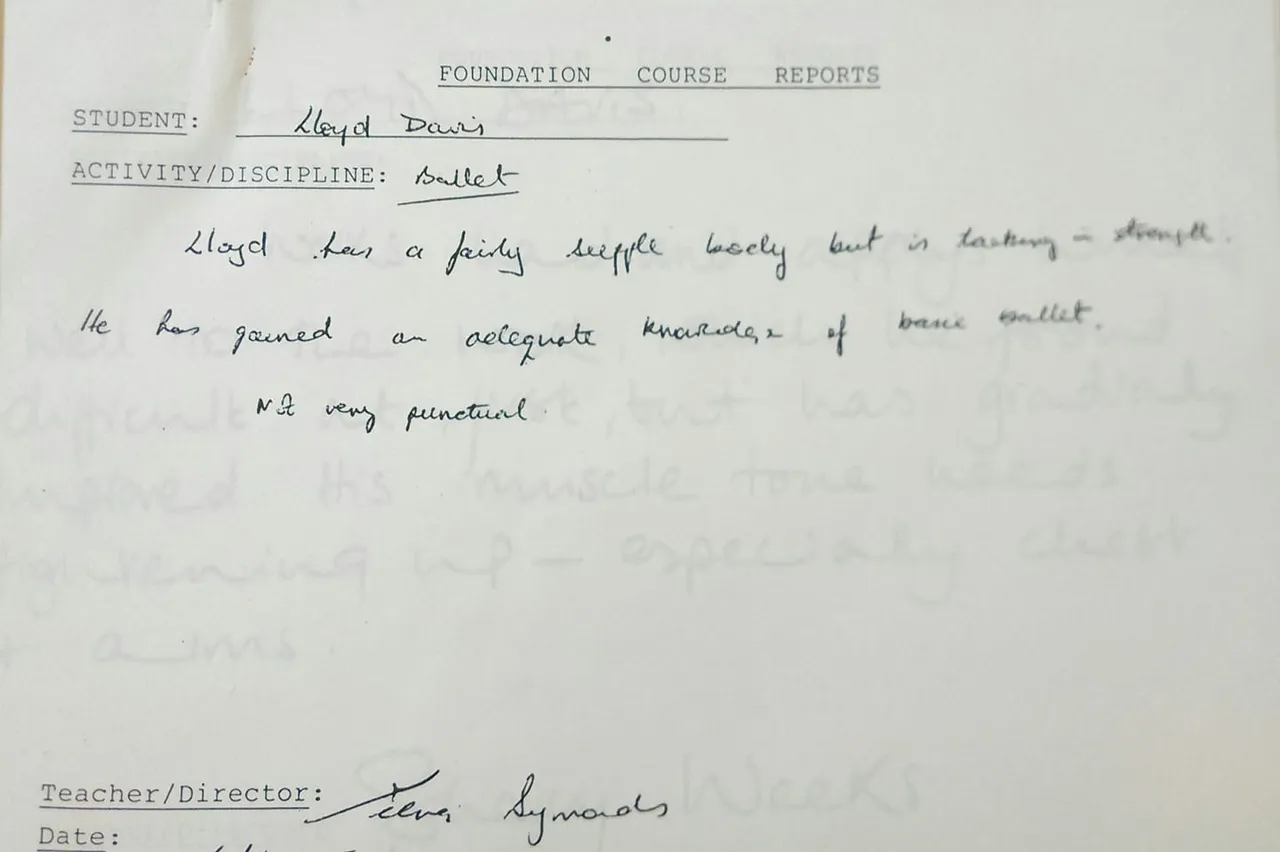 FOUNDATION COURSE REPORTS
STUDENT: Lloyd Davis
ACTIVITY/DISCIPLINE: Ballet
Lloyd has a fairly supple body but is lacking in strength.
He has gained an adequate knowledge of basic ballet.
Not very punctual.
Teacher/Director: Symonds
Date: